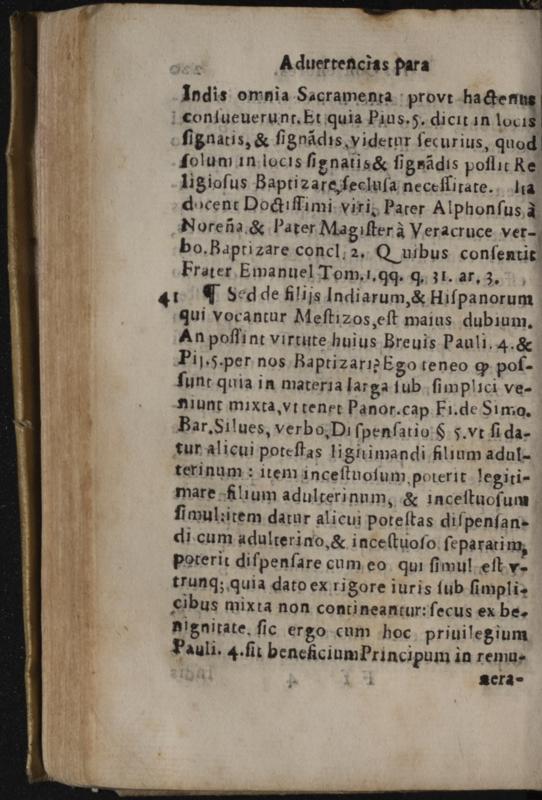 Aduertencias para
Indis omnia Sacramenta provt hactenus
consueuerunt. Et quia Pius. 5. dicit in locis
signatis, & signādis, videtur securius, quod
solum in locis signatis & signādis possit Re
ligiosus Baptizare, seclusa necessitate. Ita
docent Doctissimi viri, Pater Alphonsus à
Noreña & Pater Magister à Veracruce ver-
bo. Baptizare concl. 2. Quibus consentit
Frater Emanuel Tom. 1. qq. q. 31. ar. 3.
41 ¶ Sed de filijs Indiarum, & Hispanorum
qui vocantur Mestizos, est maius dubium.
An possint virtute huius Breuis Pauli. 4. &
Pij. 5. per nos Baptizari? Ego teneo ꝙ pos-
sunt quia in materia larga sub simplici ve-
niunt mixta, vt tenet Panor. cap Fi. de Simo.
Bar. Silues, verbo, Dispensatio § 5. vt si da-
tur alicui potestas ligitimandi filium adul-
terinum : item incestuosum, poterit legiti-
mare filium adulterinum, & incestuosum
simul: item datur alicui potestas dispensan-
di cum adulterino, & incestuoso separatim,
poterit dispensare cum eo qui simul est v-
trunq; quia dato ex rigore iuris sub simpli-
cibus mixta non contineantur: secus ex be-
nignitate. sic ergo cum hoc priuilegium
Pauli. 4. sit beneficium Principum in remu-
nera-